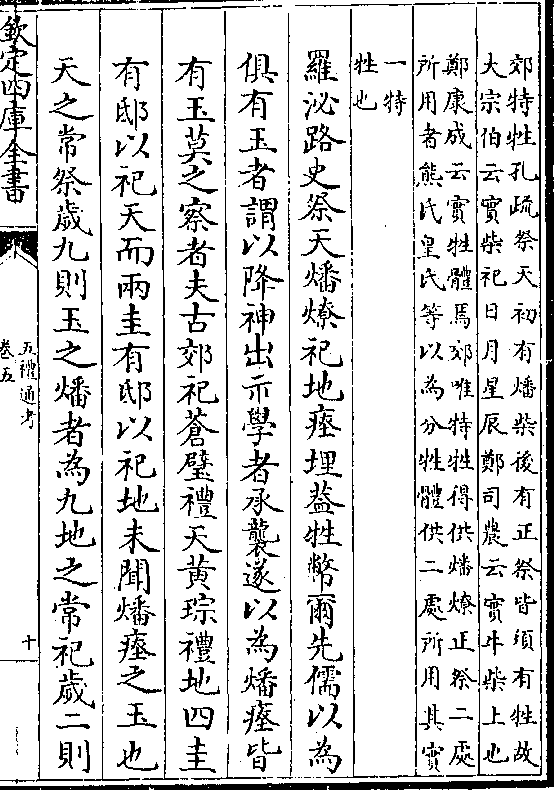 郊特牲孔疏祭天初有燔柴後有正祭皆須有牲故
大宗伯云實柴祀日月星辰鄭司農云實牛柴上也
鄭康成云實牲體焉郊唯特牲得供燔燎正祭二處
所用者熊氏皇氏等以為分牲體供二處所用其實
一特
牲也
羅泌路史祭天燔燎祀地瘞埋葢牲幣爾先儒以為
俱有玉者謂以降神出示學者承襲遂以為燔瘞皆
有玉莫之察者夫古郊祀蒼璧禮天黃琮禮地四圭
有邸以祀天而兩圭有邸以祀地未聞燔瘞之玉也
天之常祭歲九則玉之燔者為九地之常祀歲二則
欽定四庫全書
五禮通考
卷五
十